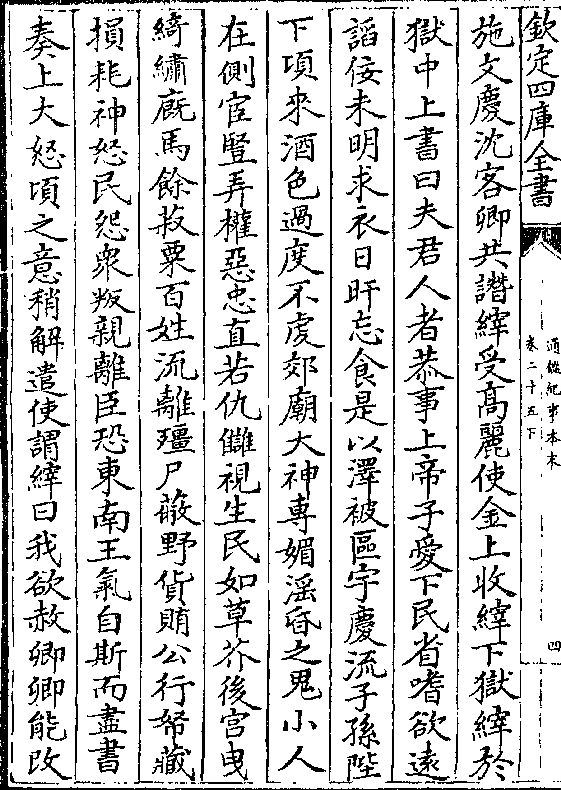 欽定四庫全書
通鑑紀事本末
卷二十五下
四
施文慶沈客卿共譛縡受髙麗使金上收縡下獄縡於
獄中上書曰夫君人者恭事上帝子愛下民省嗜欲逺
謟佞未明求衣日旰忘食是以澤被區宇慶流子孫陛
下頃來酒色過度不䖍郊廟大神專媚滛昏之鬼小人
在側宦豎弄權惡忠直若仇讎視生民如草芥後宫曵
綺繡廐馬餘菽粟百姓流離殭尸蔽野貨賄公行帑藏
損耗神怒民怨衆叛親離臣恐東南王氣自斯而盡書
奏上大怒頃之意稍解遣使謂縡曰我欲赦卿卿能改